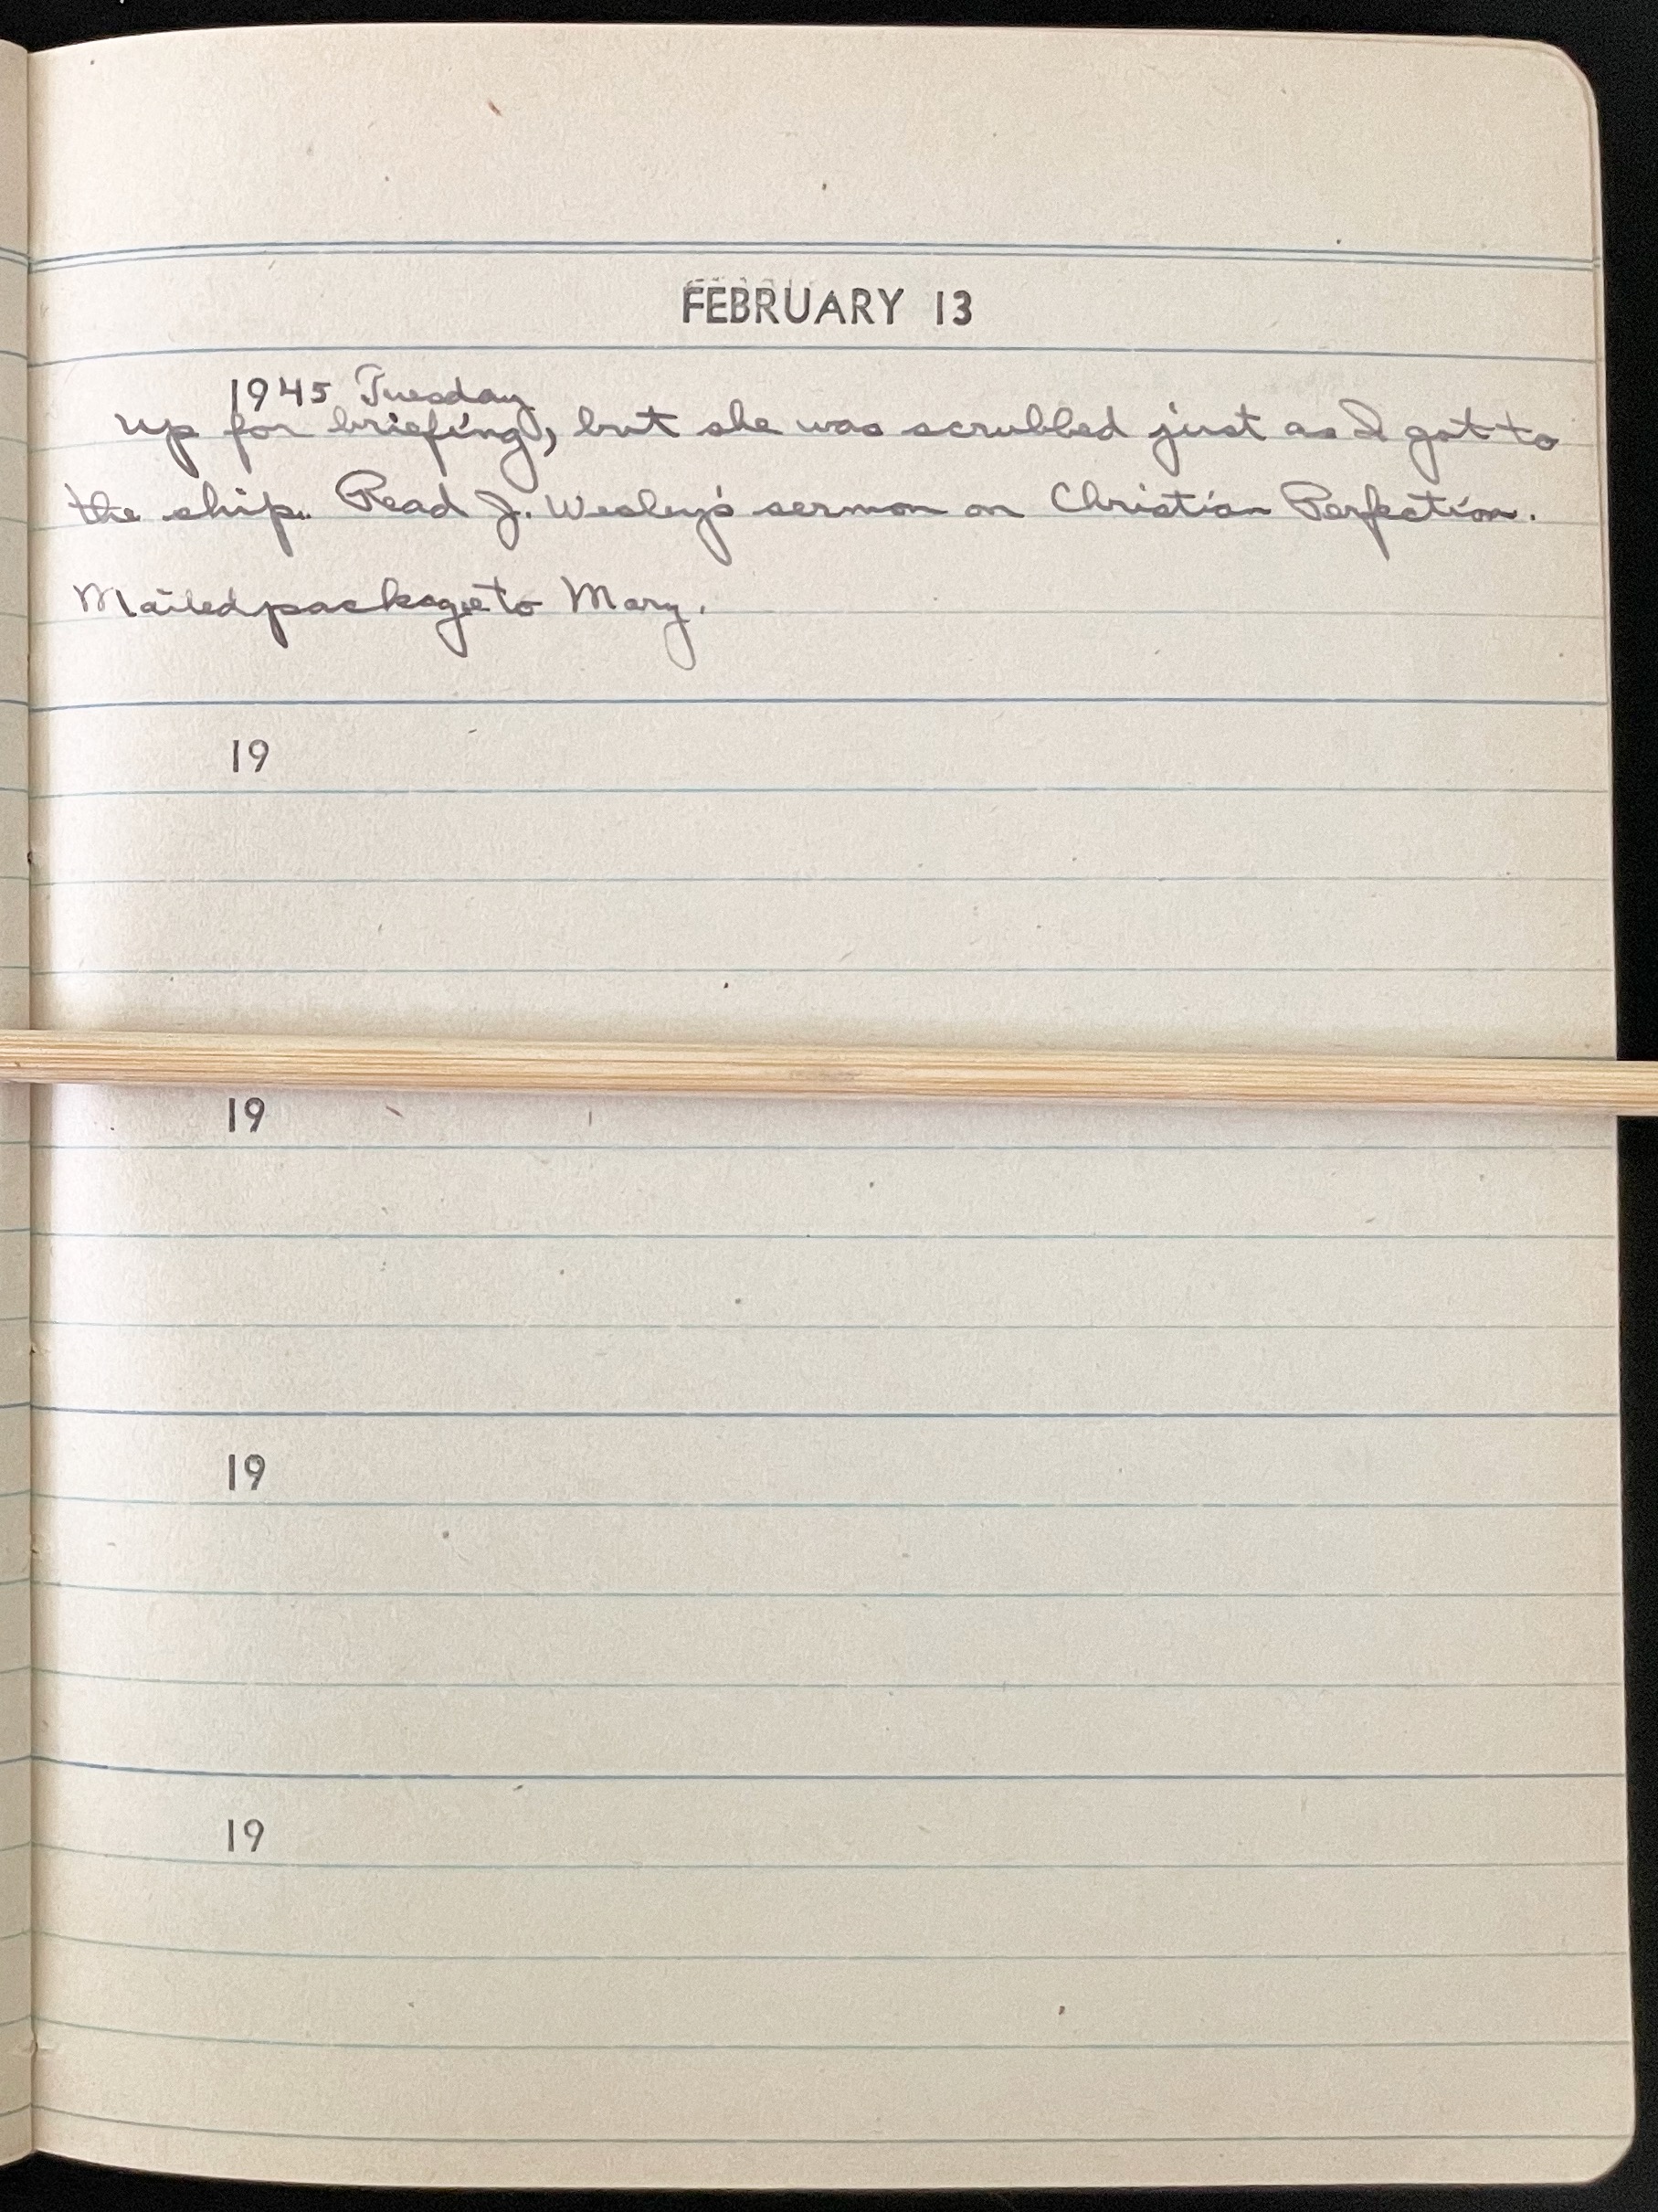 FEBRUARY 13
1945 Tuesday
Up for briefing, but she was scrubbed just as I got to
the ship. Read J. Wesley's sermon on Christian Perfection.
Mailed package to Mary.
19
19
19
19